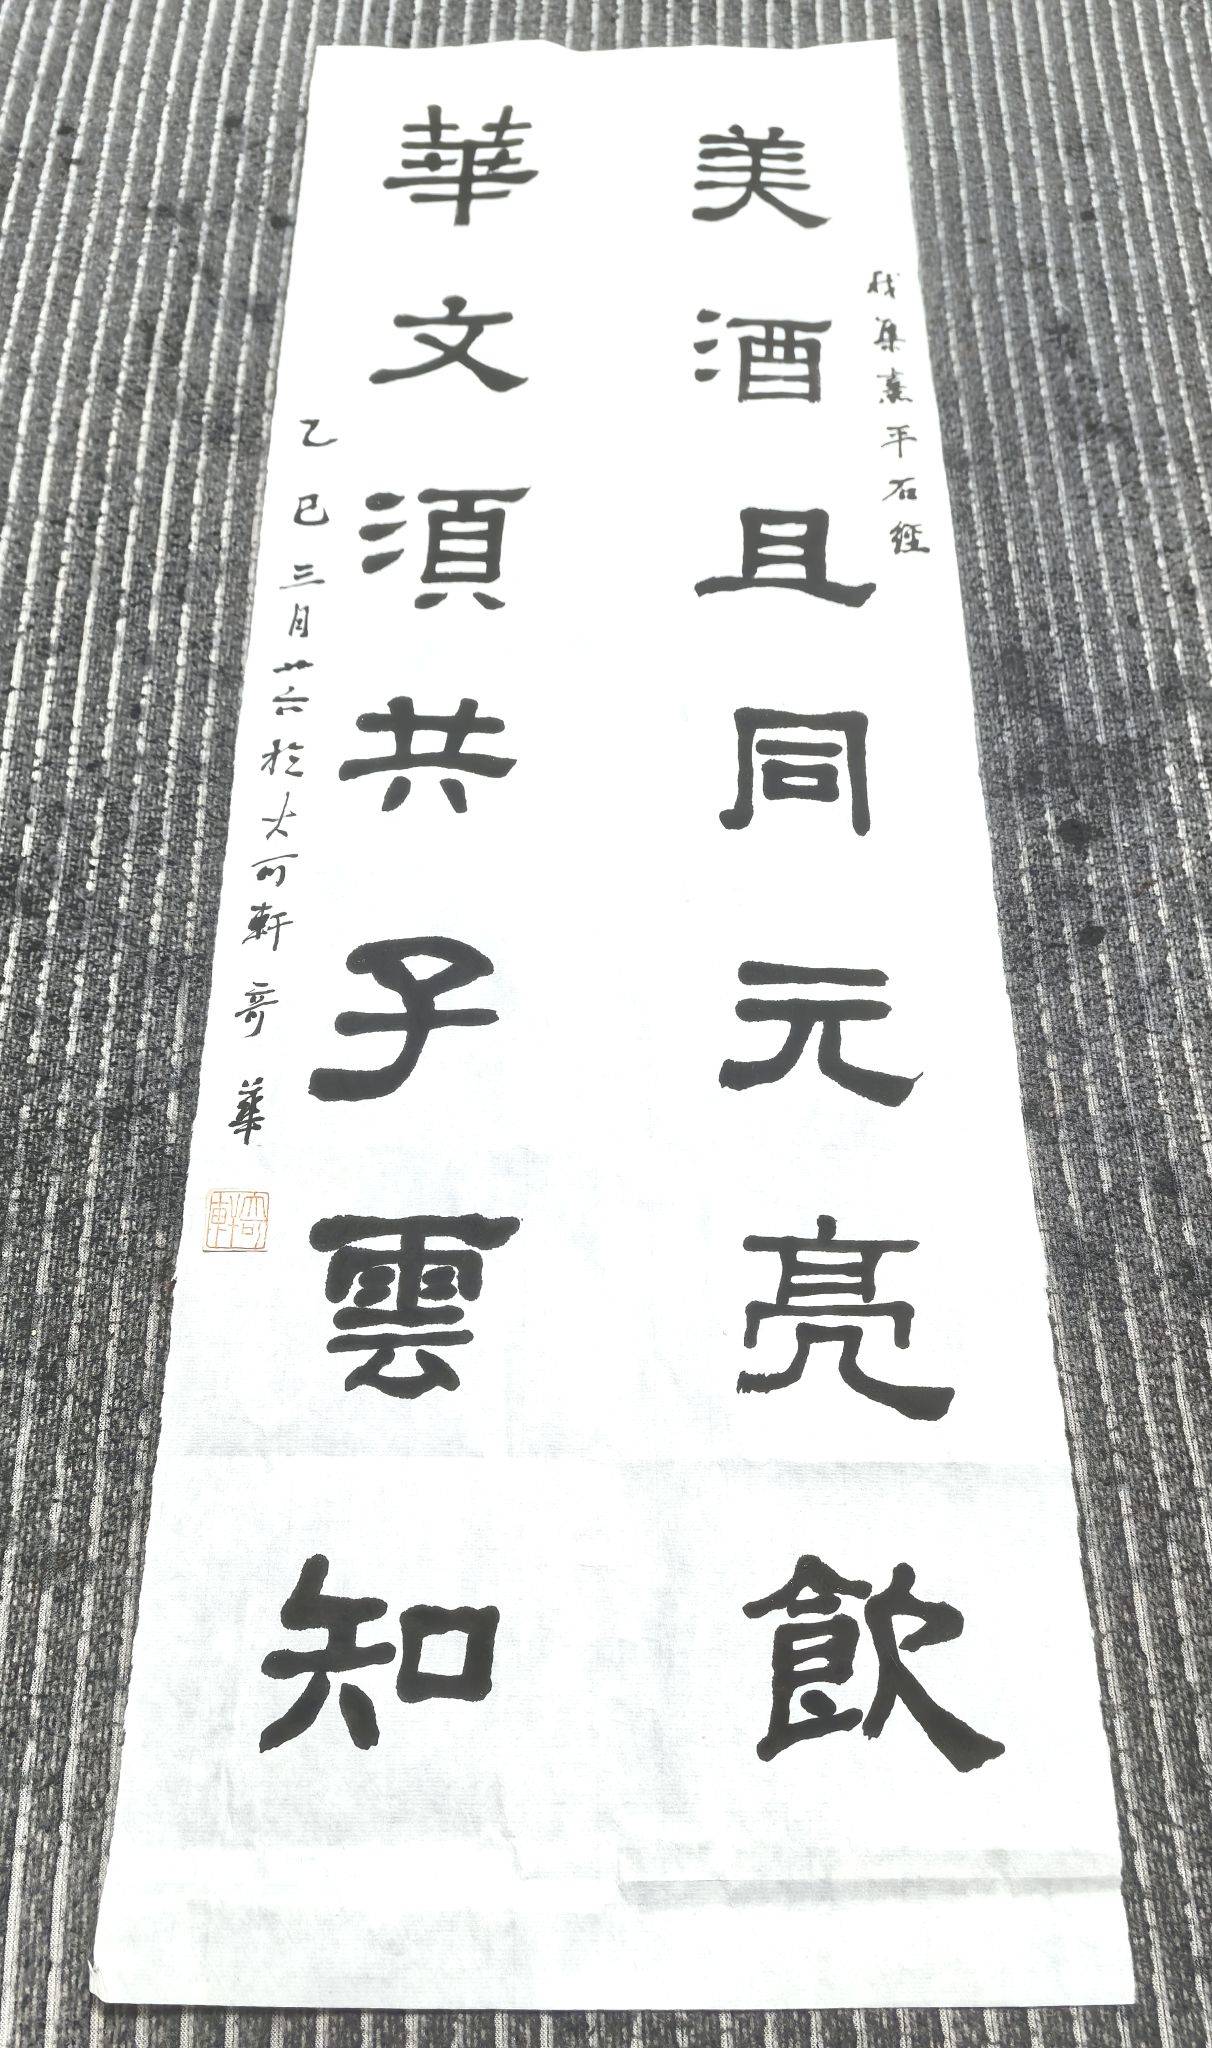 美酒且同元亮飲
集熹平石經
華文須共子雲知
乙巳三月廿六於大可軒 奇華
奇軒